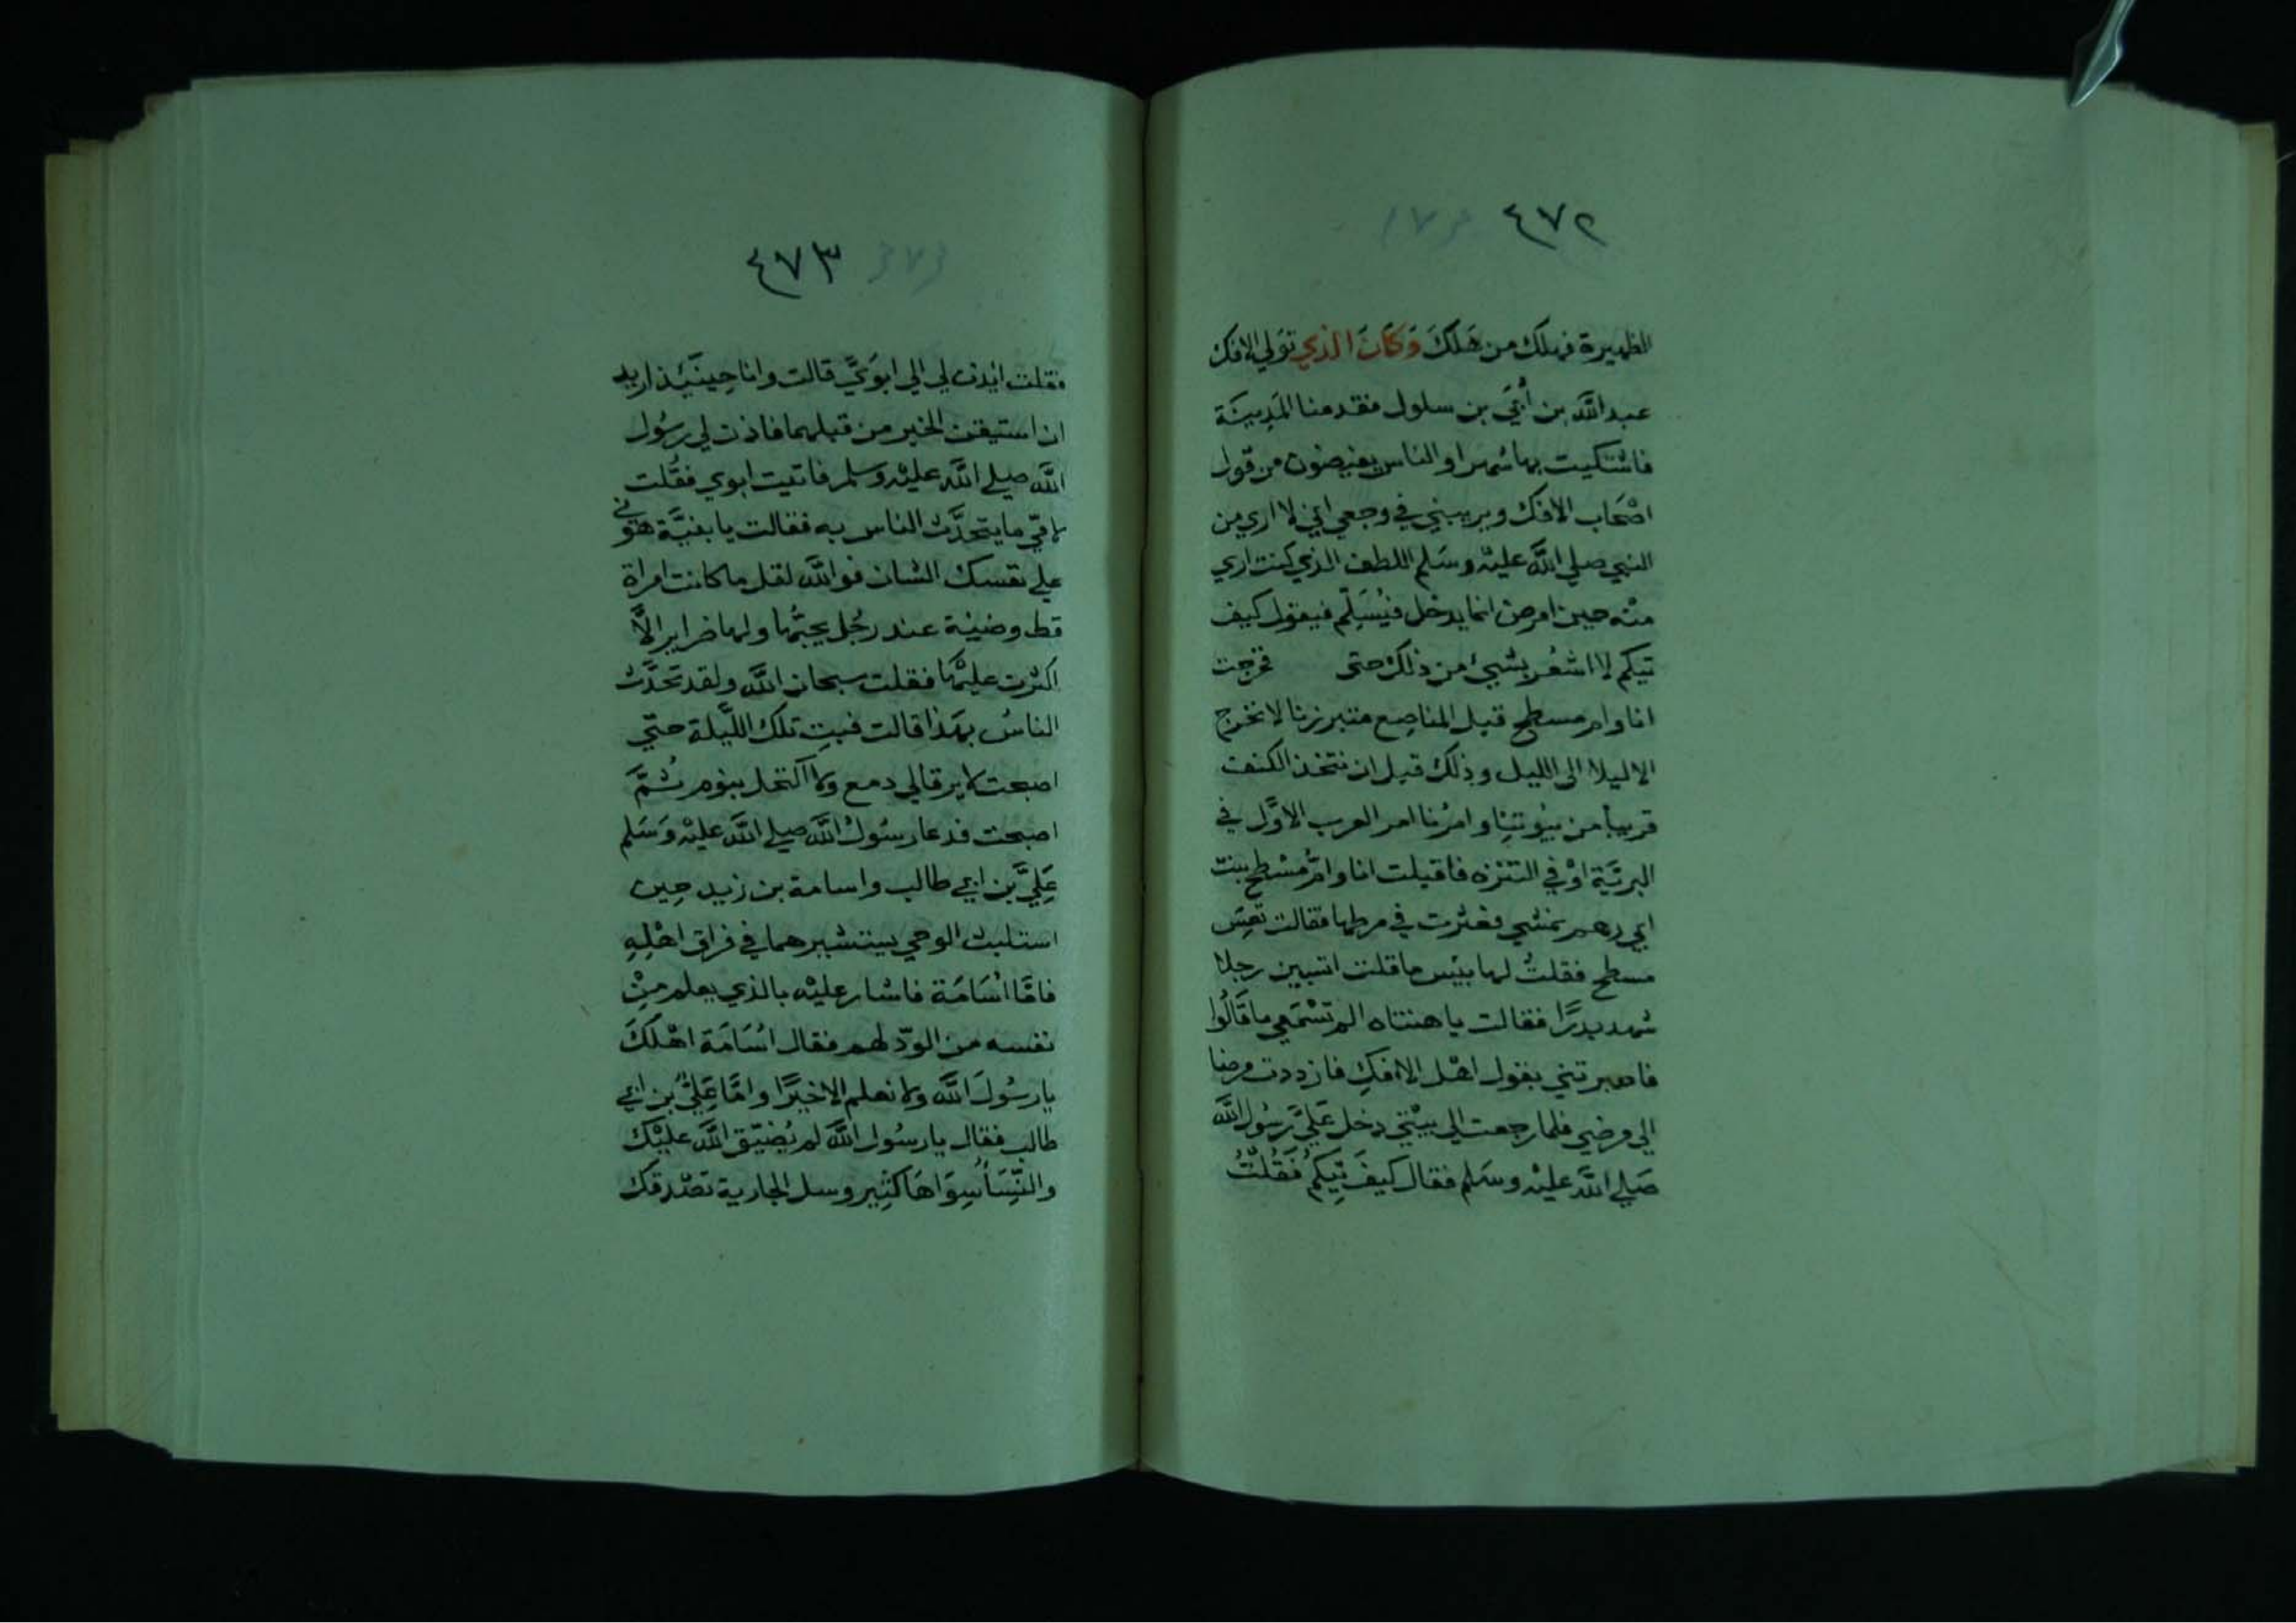 ٤٧٢
الظهيرة فهلك من هَلَكَ وَكَانَ الذي تَوَلي الافك
عبد الله بن أُبَيّ بن سلول فقدمنا المَدِينَة
فاشتكيت بها شهرا والناس يفيضون من قول
اصْحَاب الافك ويريبني في وجعي اني لا اري من
النبي صلي اللَّه عليْه وسَلم اللطف الذي كنت اري
منْه حين امرض انما يدخل فيُسَلِّم فيقول كيف
تيكم لا اشعُر بشيئ من ذلك حتى فخرجت
انا وام مسطح قبل المناصِع متبرزنا لا نخرج
الا ليلا الى الليل وذلك قبل ان نتخذ الكنف
قريباً من بيُوتنِا وامرُنا امر العرب الاوَّل في
البريَّة اوْ في التنزه فاقبلت انا وامّ مسْطح بنت
ابي رهم نمشي فعثرت في مرطها فقالت تعِسَ
مسطح فقلتُ لها بيْس ما قلت اتسبين رجلا
شهد بدرًا فقالت يا هنتاه الم تسْمَعي ما قَالُوا
فاخبرتني بقول اهْل الافكِ فازددت مرضا
الي مرضي فلما رجعت الي بيْتي دخل عَلَيَّ رسُول اللَّه
صَلي اللَّه عليْه وسَلم فقال كيفَ تِيكمُ فَقُلْتُ
٤٧٣
فقلت ايذن لي الي ابوَيَّ قالت وانا حِينَيْذ اريد
ان استيقن الخبر من قبلهما فاذن لي رسُول
اللَّه صلي اللَّه عليْه وسلم فاتيت ابوي فقُلت
لامّي ما يتحدَّث الناس به فقالت يا بنيَّة هوّني
علي نفسك الشان فواللَّه لقل ما كانت امراة
قط وضيئة عند رجُل يحبُّها ولها ضراير الَّا
اكثرت عليْها فقلت سبحان اللَّه ولقد تحَدَّث
الناسُ بهَذا قالت فبت تلك اللَّيلة حتّي
اصبحت لا يرقالي دمع ولا اكتحل بنوم ثُمَّ
اصبحْت فدعا رسُول اللَّه صلي اللَّه عليْه وَسَلم
عَلِيَّ بن ابي طالب واسامة بن زيد حِين
استلبث الوحي يستشيرهما في فراق اهْلِهِ
فامَّا اسَامَة فاشار عليْه بالذي يعلم مِنْ
نفسه من الودّ لهم فقال اسَامَة اهْلكَ
يا رسُولَ اللَّه ولا نعلم الا خيرًا وامَّا عَلِيُّ بن ابي
طالب فقال يا رسُول اللَّه لم يُضيّق اللَّه عليْك
والنِّسَأُ سِوَاهَا كثِير وسل الجارية تصْدقك